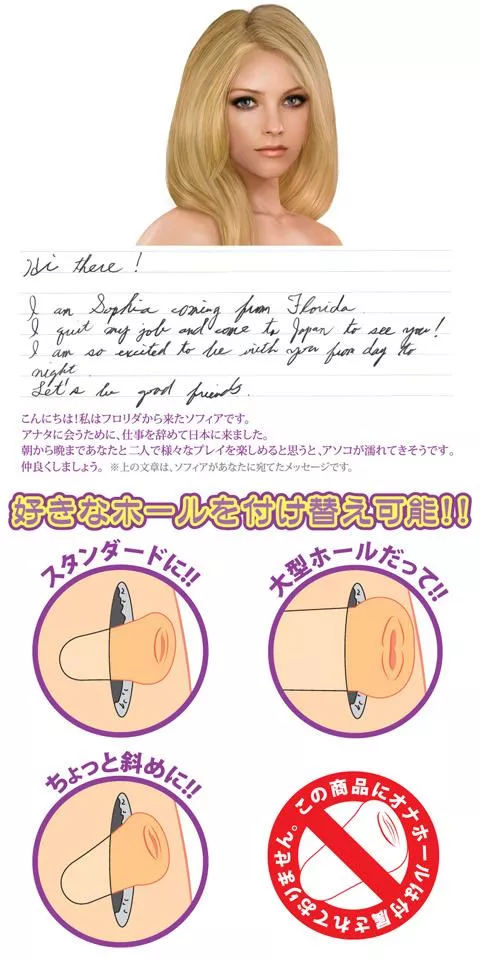 Hi there!
I am Sophia coming from Florida.
I quit my job and come to Japan to see you!
I am so excited to be with you from day to
night.
Let's be good friends.
こんにちは!私はフロリダから来たソフィアです。
アナタに会うために、仕事を辞めて日本に来ました。
朝から晩まであなたと二人で様々なプレイを楽しめると思うと、アソコが濡れてきそうです。
仲良くしましょう。 ※上の文章は、ソフィアがあなたに宛てたメッセージです。
好きなホールを付け替え可能!!
スタンダードに!!
大型ホールだって!!
ちょっと斜めに!!
この商品にオナホールは付属されておりません。